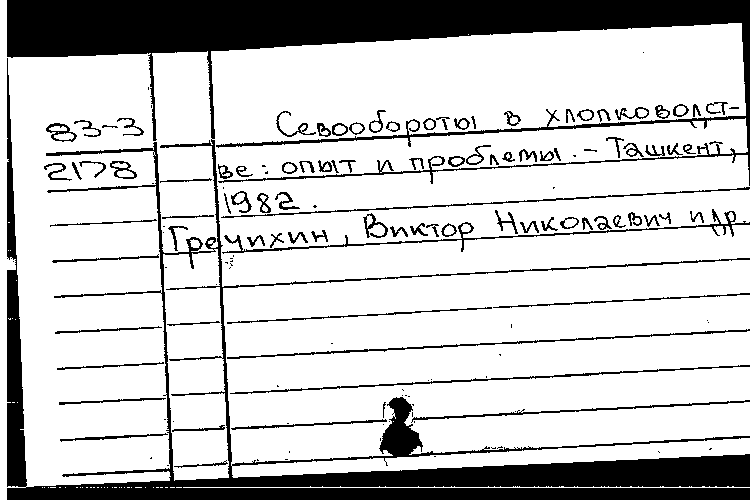 83-3 Севообороты в хлопководст-
2178 ве: опыт и проблемы. - Ташкент,
1982.
Гречихин, Виктор Николаевич и др.